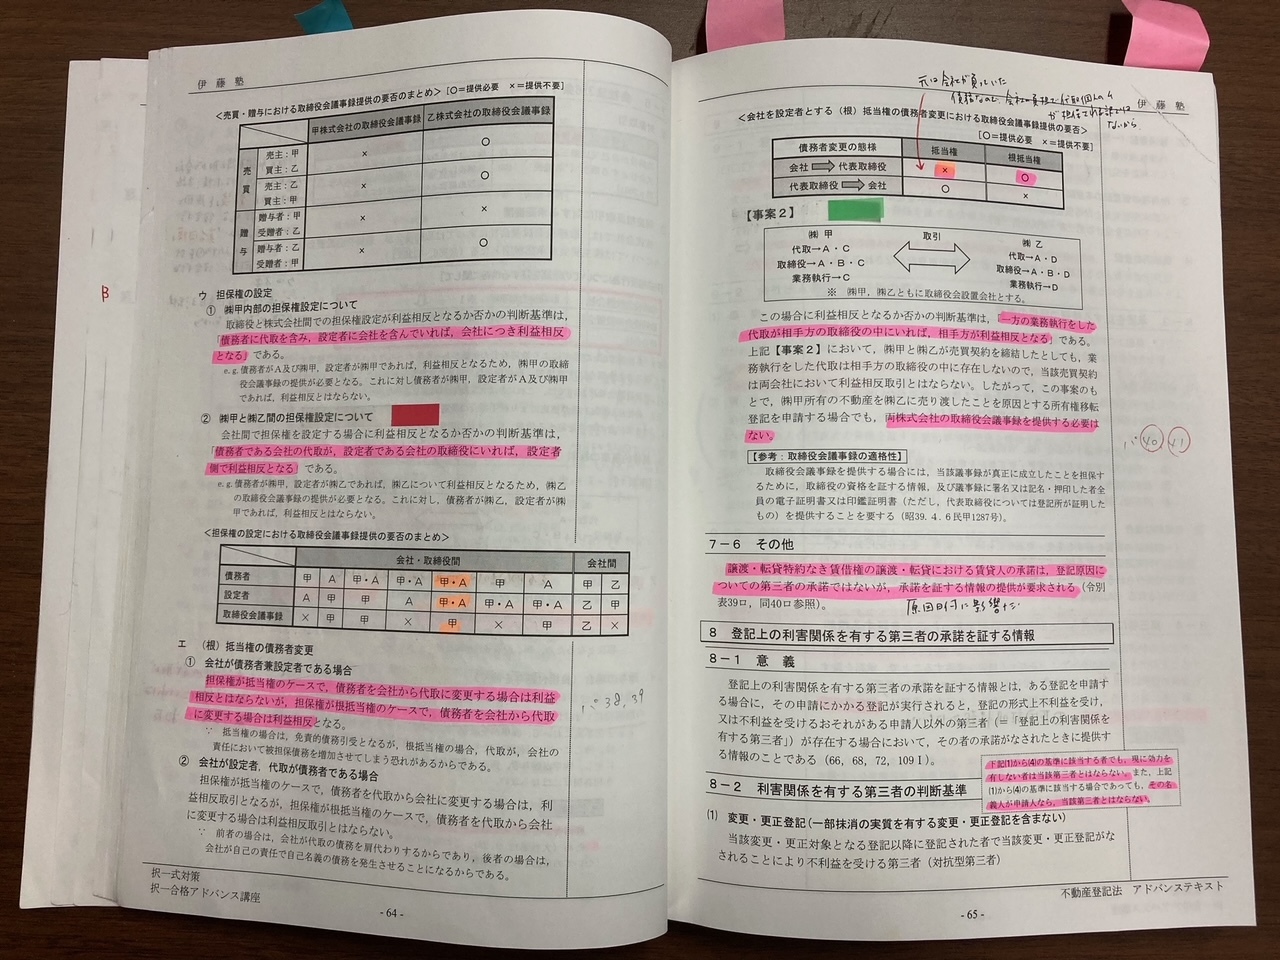 伊 藤 塾
<売買・贈与における取締役会議事録提供の要否のまとめ> [○=提供必要 ×=提供不要]
甲株式会社の取締役会議事録 乙株式会社の取締役会議事録
売買 売主:甲 買主:乙 × ○
売主:乙 買主:甲 × ○
贈与 贈与者:甲 受贈者:乙 × ×
贈与者:乙 受贈者:甲 × ○
ウ 担保権の設定
① ㈱甲内部の担保権設定について
取締役と株式会社間での担保権設定が利益相反となるか否かの判断基準は,
「債務者に代取を含み,設定者に会社を含んでいれば,会社につき利益相反
となる」である。
e.g.債務者がA及び㈱甲,設定者が㈱甲であれば,利益相反となるため,㈱甲の取締
役会議事録の提供が必要となる。これに対し債務者が㈱甲,設定者がA及び㈱甲
であれば,利益相反とはならない。
② ㈱甲と㈱乙間の担保権設定について
会社間で担保権を設定する場合に利益相反となるか否かの判断基準は,
「債務者である会社の代取が,設定者である会社の取締役にいれば,設定者
側で利益相反となる」である。
e.g.債務者が㈱甲,設定者が㈱乙であれば,㈱乙について利益相反となるため,㈱乙
の取締役会議事録の提供が必要となる。これに対し,債務者が㈱乙,設定者が㈱
甲であれば,利益相反とはならない。
<担保権の設定における取締役会議事録提供の要否のまとめ>
会社・取締役間 会社間
債務者 甲 A 甲・A 甲・A 甲・A 甲 A 甲 乙
設定者 A 甲 甲 A 甲・A 甲・A 甲・A 乙 甲
取締役会議事録 × 甲 甲 × 甲 × 甲 乙 ×
エ (根)抵当権の債務者変更
① 会社が債務者兼設定者である場合
担保権が抵当権のケースで,債務者を会社から代取に変更する場合は利益
相反とはならないが,担保権が根抵当権のケースで,債務者を会社から代取
に変更する場合は利益相反となる。
∵ 抵当権の場合は,免責的債務引受となるが,根抵当権の場合,代取が,会社の
責任において被担保債務を増加させてしまう恐れがあるからである。
② 会社が設定者,代取が債務者である場合
担保権が抵当権のケースで,債務者を代取から会社に変更する場合は,利
益相反取引となるが,担保権が根抵当権のケースで,債務者を代取から会社
に変更する場合は利益相反取引とはならない。
∵ 前者の場合は,会社が代取の債務を肩代わりするからであり,後者の場合は,
会社が自己の責任で自己名義の債務を発生させることになるからである。
パ38,39
択一式対策
択一合格アドバンス講座
- 64 -
元は会社が負っていた
ないから
伊 藤 塾
<会社を設定者とする(根)抵当権の債務者変更における取締役会議事録提供の要否>
[○=提供必要 ×=提供不要]
債務者変更の態様 抵当権 根抵当権
会社 ⇒ 代表取締役 × ○
代表取締役 ⇒ 会社 ○ ×
【事案2】
㈱ 甲 取引 ㈱ 乙
代取→A・C 代取→A・D
取締役→A・B・C 取締役→A・B・D
業務執行→C 業務執行→D
※ ㈱甲,㈱乙ともに取締役会設置会社とする。
この場合に利益相反となるか否かの判断基準は,「一方の業務執行をした
代取が相手方の取締役の中にいれば,相手方が利益相反となる」である。
上記【事案2】において,㈱甲と㈱乙が売買契約を締結したとしても,業
務執行をした代取は相手方の取締役の中に存在しないので,当該売買契約
は両会社において利益相反取引とはならない。したがって,この事案のも
とで,㈱甲所有の不動産を㈱乙に売り渡したことを原因とする所有権移転
登記を申請する場合でも,両株式会社の取締役会議事録を提供する必要は
ない。
パ40 41
【参考:取締役会議事録の適格性】
取締役会議事録を提供する場合には,当該議事録が真正に成立したことを担保す
るために,取締役の資格を証する情報,及び議事録に署名又は記名・押印した者全
員の電子証明書又は印鑑証明書(ただし,代表取締役については登記所が証明した
もの)を提供することを要する(昭39.4.6民甲1287号)。
7-6 その他
譲渡・転貸特約なき賃借権の譲渡・転貸における賃貸人の承諾は,登記原因に
ついての第三者の承諾ではないが,承諾を証する情報の提供が要求される(令別
表39ロ,同40ロ参照)。
8 登記上の利害関係を有する第三者の承諾を証する情報
8-1 意 義
登記上の利害関係を有する第三者の承諾を証する情報とは,ある登記を申請す
る場合に,その申請にかかる登記が実行されると,登記の形式上不利益を受け,
又は不利益を受けるおそれがある申請人以外の第三者(=「登記上の利害関係を
有する第三者」)が存在する場合において,その者の承諾がなされたときに提供す
る情報のことである(66,68,72,109Ⅰ)。
下記(1)から(4)の基準に該当する者でも,現に効力を
有しない者は当該第三者とはならない。また,上記
(1)から(4)の基準に該当する場合であっても,その名
義人が申請人なら,当該第三者とはならない。
8-2 利害関係を有する第三者の判断基準
(1) 変更・更正登記(一部抹消の実質を有する変更・更正登記を含まない)
当該変更・更正対象となる登記以降に登記された者で当該変更・更正登記がな
されることにより不利益を受ける第三者(対抗型第三者)
不動産登記法 アドバンステキスト
- 65 -